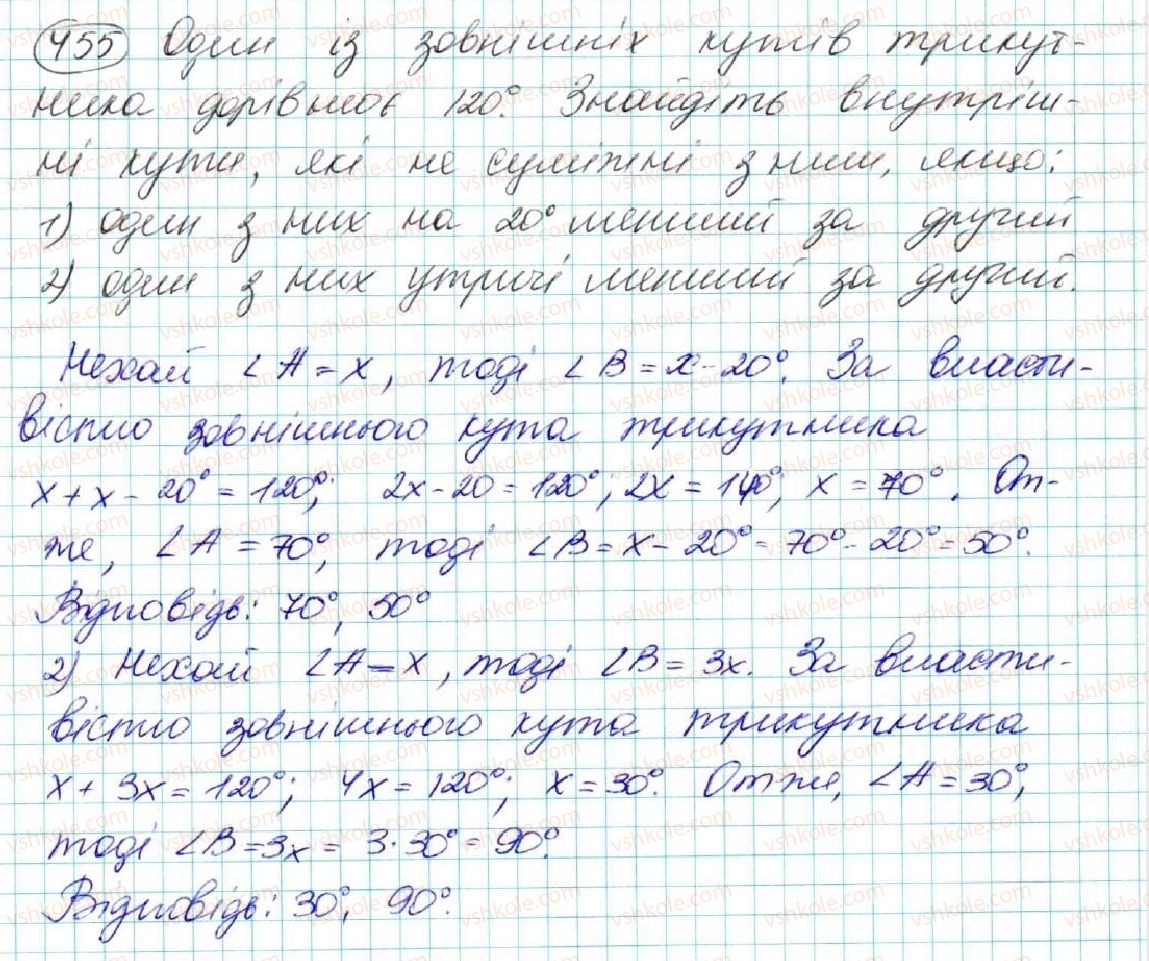 455 Один із зовнішніх кутів трикут-
ника дорівнює 120°. Знайдіть внутріш-
ні кути, які не суміжні з ним, якщо:
1) один з них на 20° менший за другий
2) один з них утричі менший за другий.
Нехай ∠A = x, тоді ∠B = x - 20°. За власти-
вістю зовнішнього кута трикутника
x + x - 20° = 120°; 2x - 20 = 120°; 2x = 140°; x = 70°. От-
же, ∠A = 70°, тоді ∠B = x - 20° = 70° - 20° = 50°.
Відповідь: 70°, 50°
2) Нехай ∠A = x, тоді ∠B = 3x. За власти-
вістю зовнішнього кута трикутника
x + 3x = 120°; 4x = 120°; x = 30°. Отже, ∠A = 30°,
тоді ∠B = 3x = 3·30° = 90°.
Відповідь: 30°, 90°.